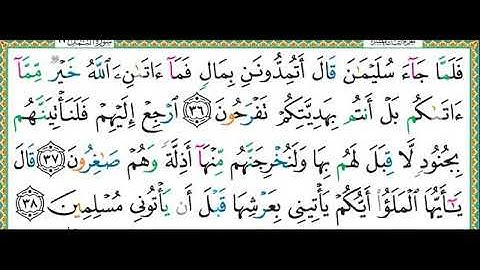 فَلَمَّا جَآءَ سُلَيْمَٰنَ قَالَ أَتُمِدُّونَنِ بِمَالٍ فَمَآ ءَاتَىٰنِۦَ ٱللَّهُ خَيْرٌ مِّمَّآ
ءَاتَىٰكُم بَلْ أَنتُم بِهَدِيَّتِكُمْ تَفْرَحُونَ ٣٦ ٱرْجِعْ إِلَيْهِمْ فَلَنَأْتِيَنَّهُم
بِجُنُودٍ لَّا قِبَلَ لَهُم بِهَا وَلَنُخْرِجَنَّهُم مِّنْهَآ أَذِلَّةً وَهُمْ صَٰغِرُونَ ٣٧ قَالَ
يَٰٓأَيُّهَا ٱلْمَلَؤُا۟ أَيُّكُمْ يَأْتِينِى بِعَرْشِهَا قَبْلَ أَن يَأْتُونِى مُسْلِمِينَ ٣٨